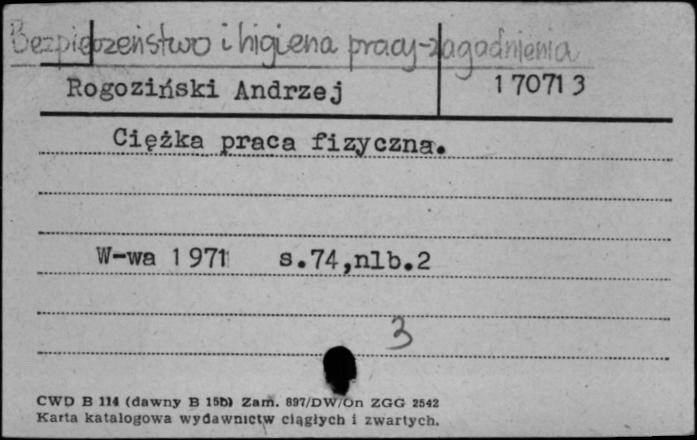 Bezpieczeństwo i higiena pracy-zagadnienia
Rogoziński Andrzej 170713
Ciężka praca fizyczna.
W-wa 1971 s.74,nlb.2
3
CWD B 114 (dawny B 15b) Zam. 897/DW/On ZGG 2542
Karta katalogowa wydawnictw ciągłych i zwartych.